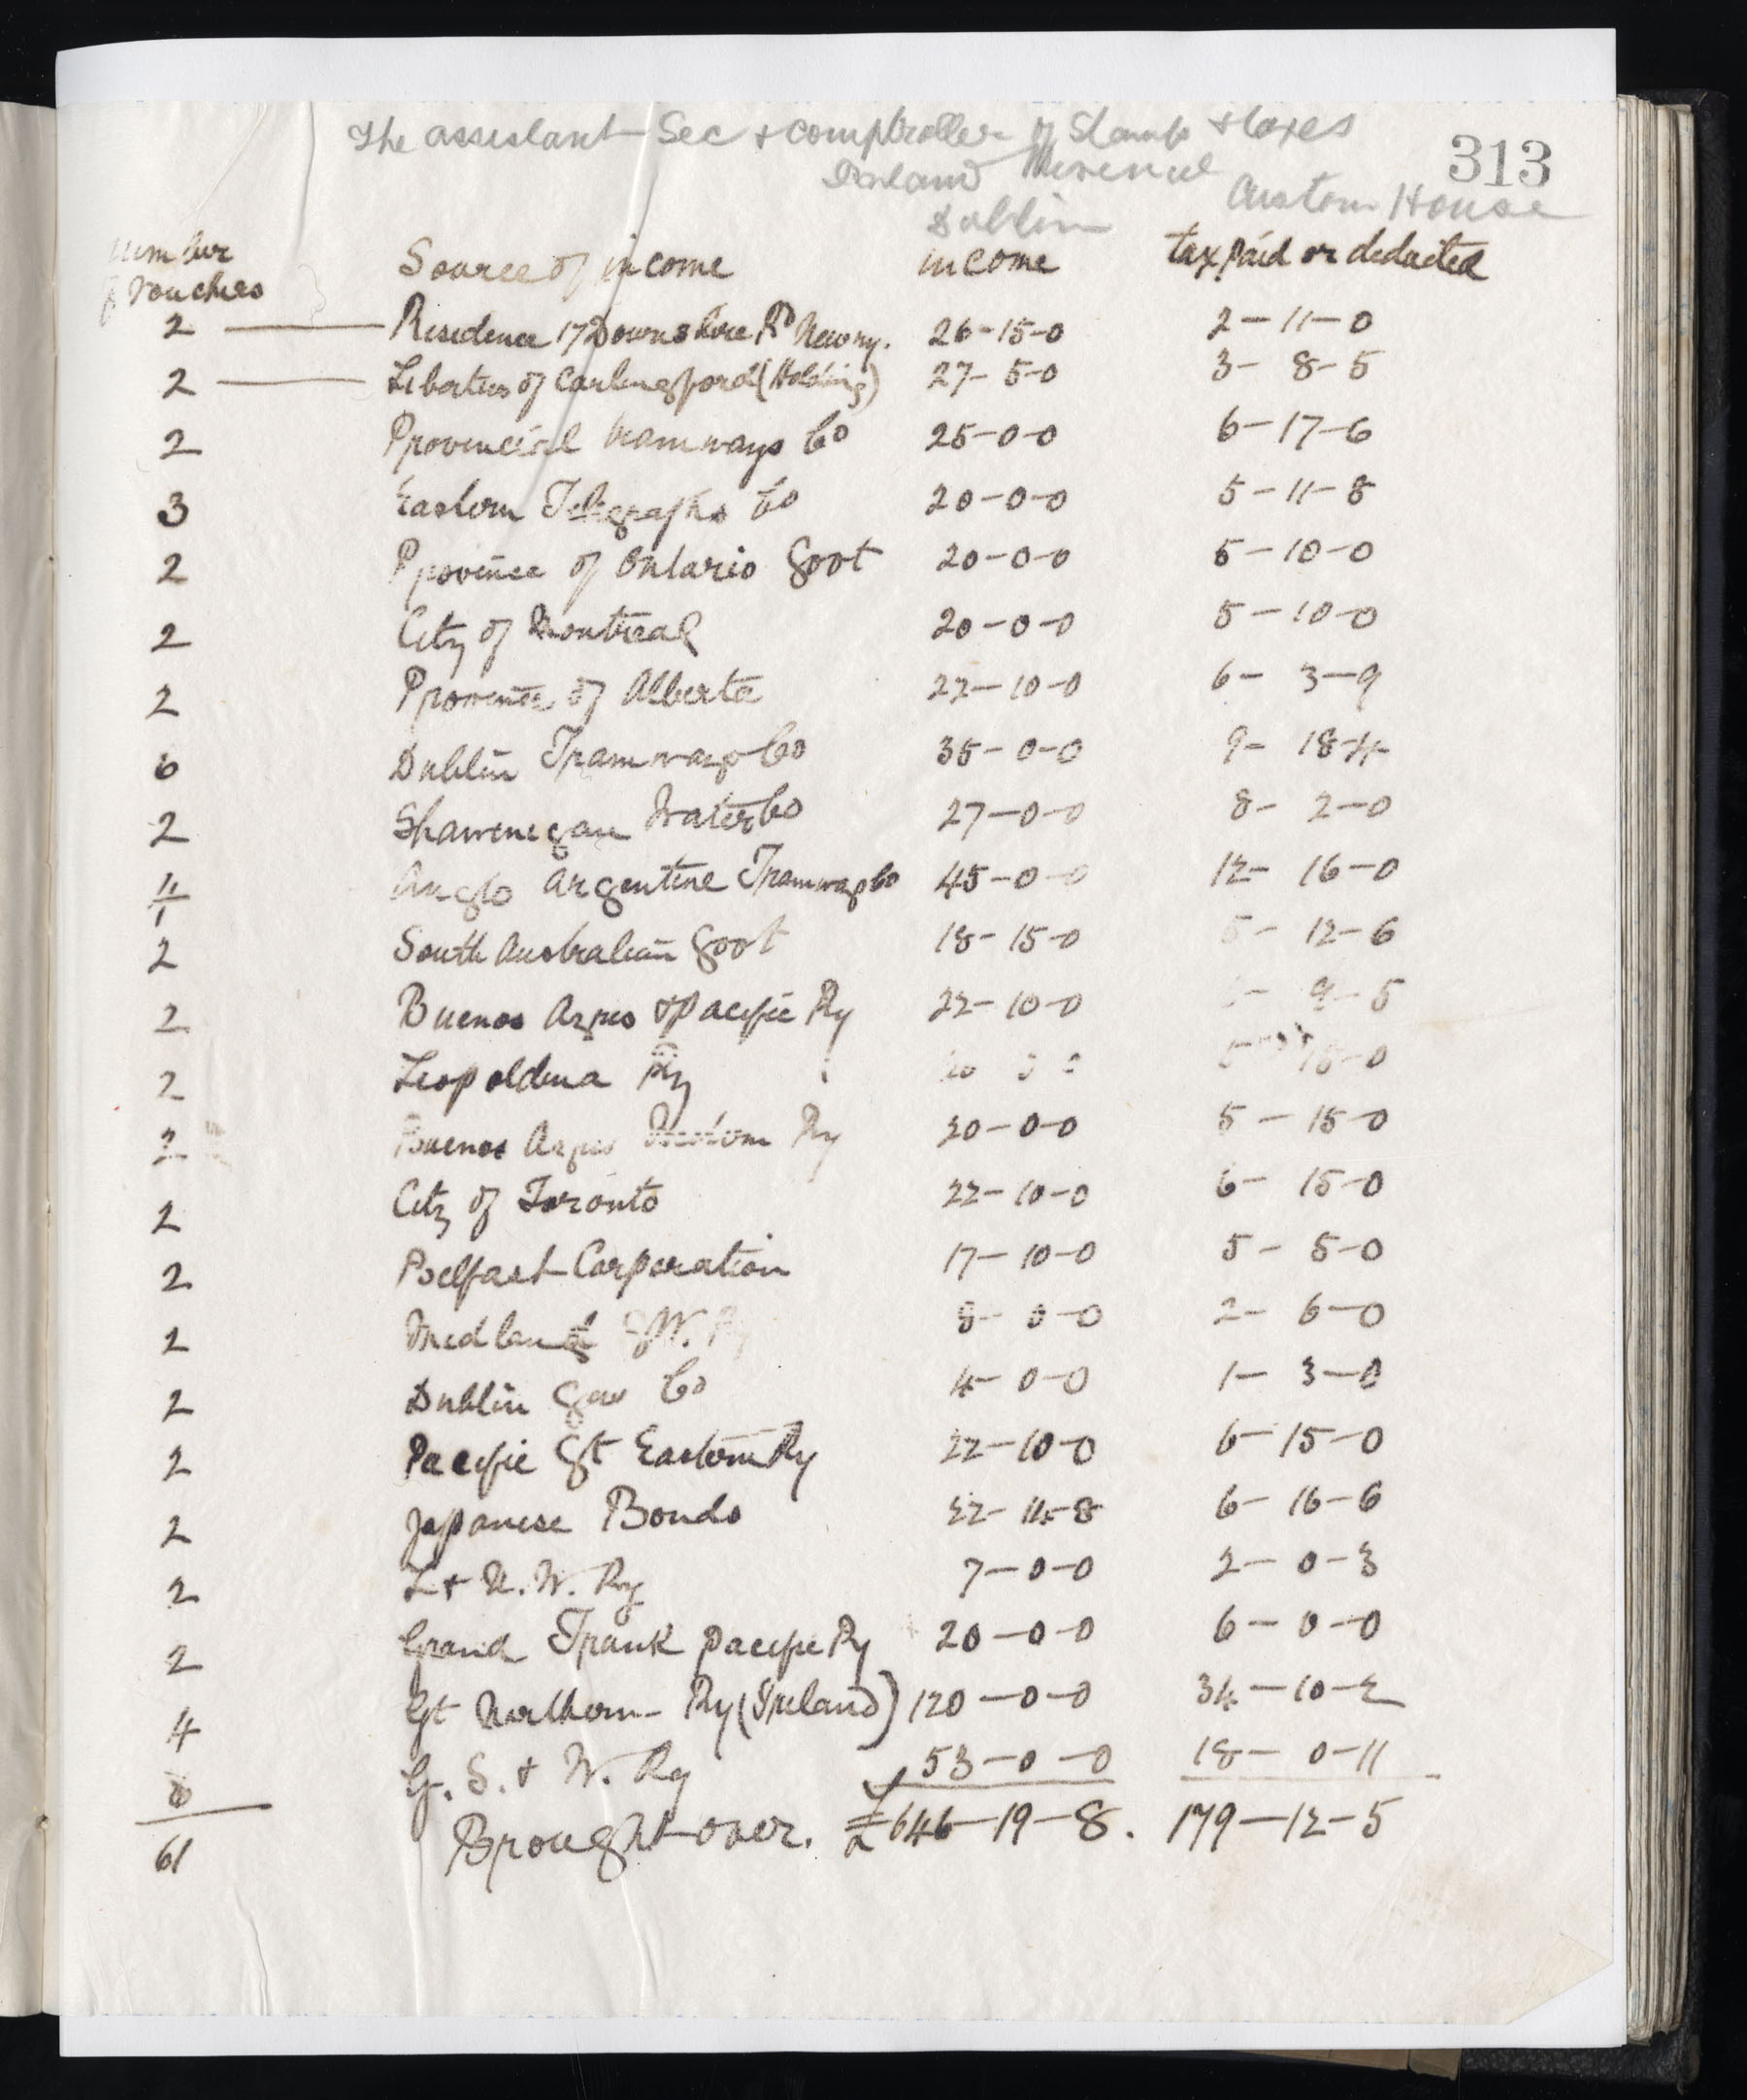 The assistant Sec + comptroller of Stamps + taxes
313
Inland Revenue
Custom House
Dublin
Number of vouches Source of income income tax paid or deducted
2 — Residence 17 Downshire Rd Newry. 26-15-0 2-11-0
2 — Liberties of Carlingford (Holding) 27-5-0 3-8-5
2 Provincial tramways Co 25-0-0 6-17-6
3 Eastern Telegraphs Co 20-0-0 5-11-8
2 Province of Ontario Govt 20-0-0 5-10-0
2 City of Montreal 20-0-0 5-10-0
2 Province of Alberta 22-10-0 6-3-9
6 Dublin Tramways Co 35-0-0 9-18-4
2 Shawenegan Water Co 27-0-0 8-2-0
4 Anglo Argentine Tramways Co 45-0-0 12-16-0
2 South Australian Govt 18-15-0 5-12-6
2 Buenos Ayres + Pacific Ry 22-10-0 9-5
2 Leopoldina Ry 5-15-0
2 Buenos Ayres Ry 20-0-0 5-15-0
2 City of Toronto 22-10-0 6-15-0
2 Belfast Corporation 17-10-0 5-5-0
2 Midland G.W. Ry 8-0-0 2-6-0
2 Dublin Gas Co 4-0-0 1-3-0
2 Pacific Gt Eastern Ry 22-10-0 6-15-0
2 Japanese Bonds 22-14-8 6-16-6
2 L + N. W. Ry 7-0-0 2-0-3
2 Grand Trunk Pacific Ry 20-0-0 6-0-0
4 Gt Northern Ry (Ireland) 120-0-0 34-10-2
G. S. + W. Ry 53-0-0 18-0-11
61 Brought over. £646-19-8. 179-12-5